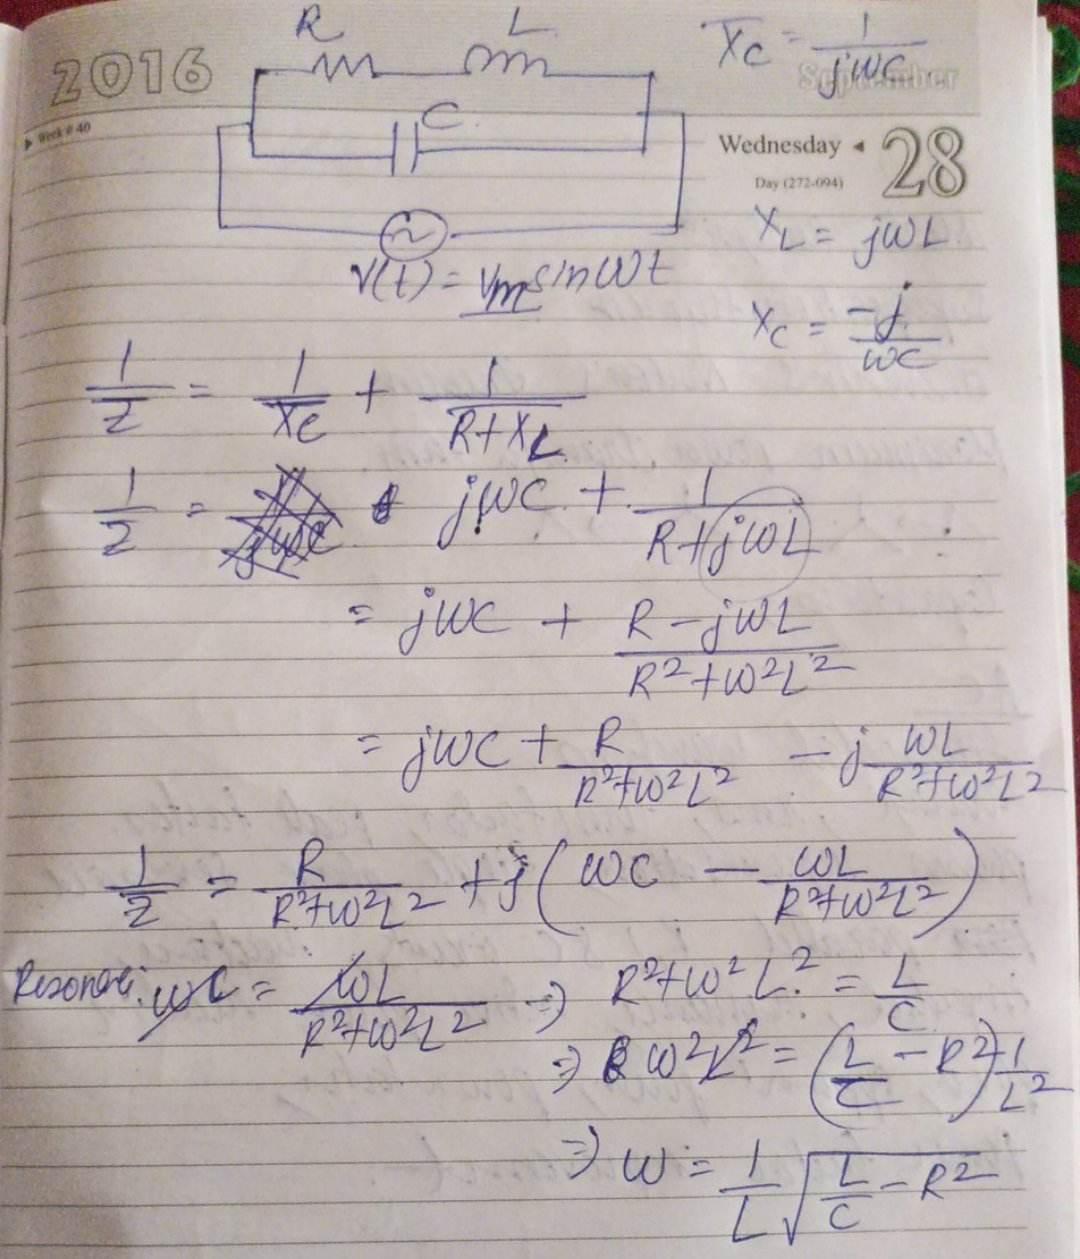 2016
R L
X_C = 1/jωC
September
▶ Week # 40
C
Wednesday ◂ 28
Day (272-094)
X_L = jωL
v(t) = Vm sinωt
X_C = -j/ωC
1/Z = 1/X_C + 1/(R+X_L)
1/Z = jωC + 1/(R+jωL)
= jωC + (R-jωL)/(R²+ω²L²)
= jωC + R/(R²+ω²L²) - j ωL/(R²+ω²L²)
1/Z = R/(R²+ω²L²) + j(ωC - ωL/(R²+ω²L²))
Resonance: ωC = ωL/(R²+ω²L²) ⇒ R²+ω²L² = L/C
⇒ ω²L² = (L/C - R²) 1/L²
⇒ ω = 1/L √(L/C - R²)